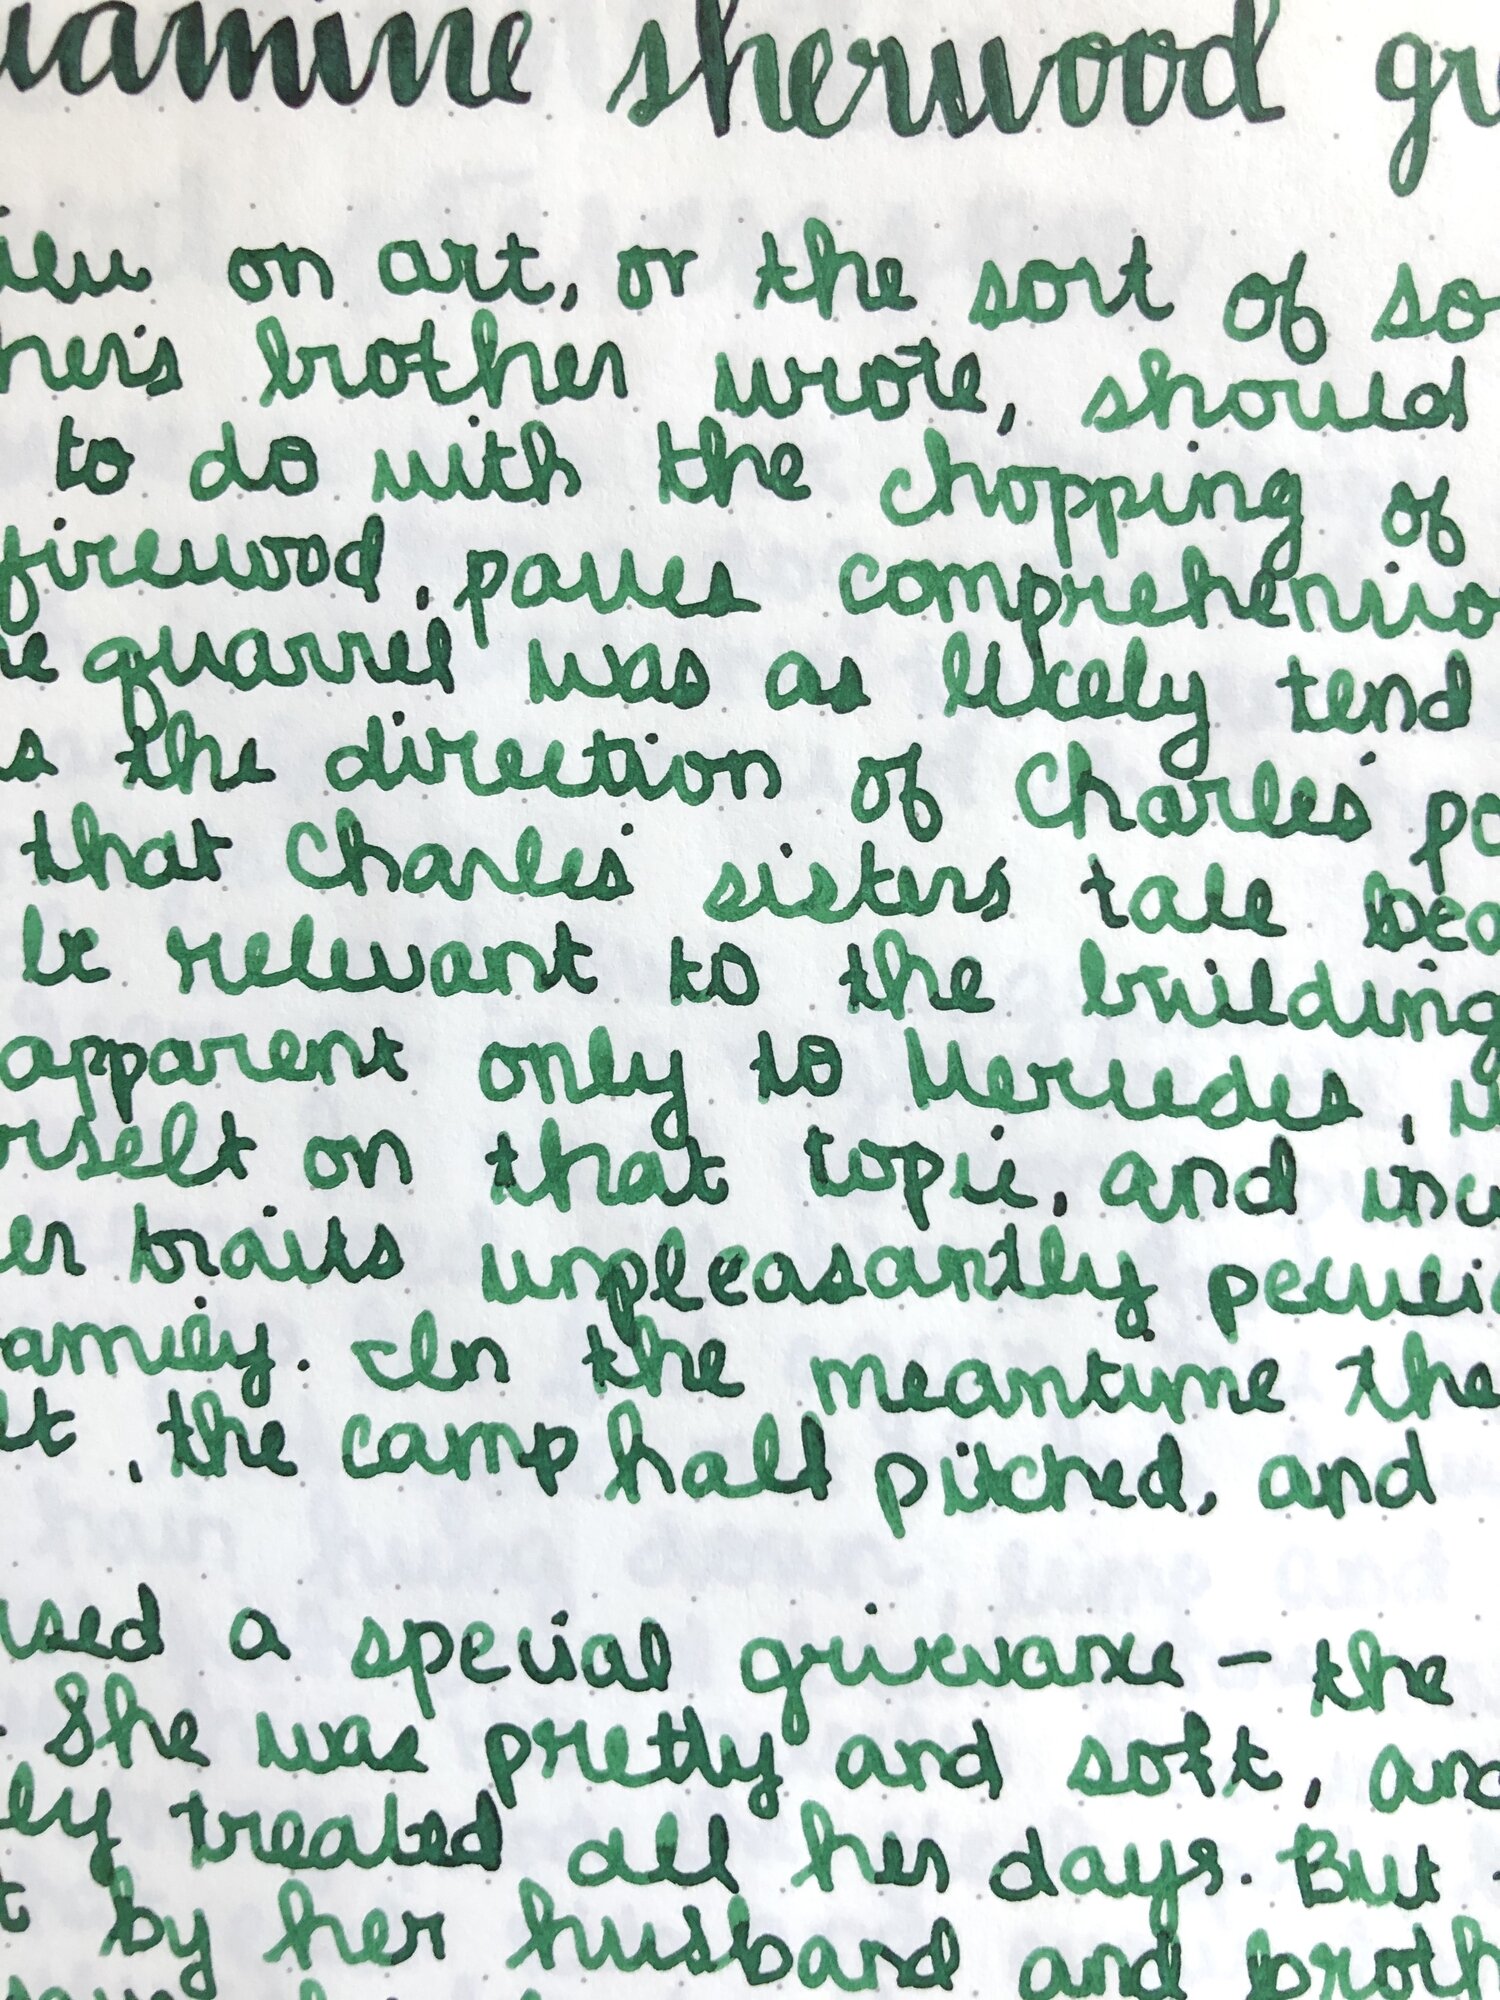 diamine sherwood gr
iew on art, or the sort of so
her's brother wrote, should
to do with the chopping of
firewood, passes comprehensio
he quarrel was as likely tend
as the direction of Charles' po
that Charles' sisters tale
be relevant to the building
apparent only to Mercedes,
erself on that topic, and
er traits unpleasantly peculi
family. In the meantime the
lt, the camp half pitched, and
sed a special grievance – the
She was pretty and soft, and
ly treated all her days. But
t by her husband and broth